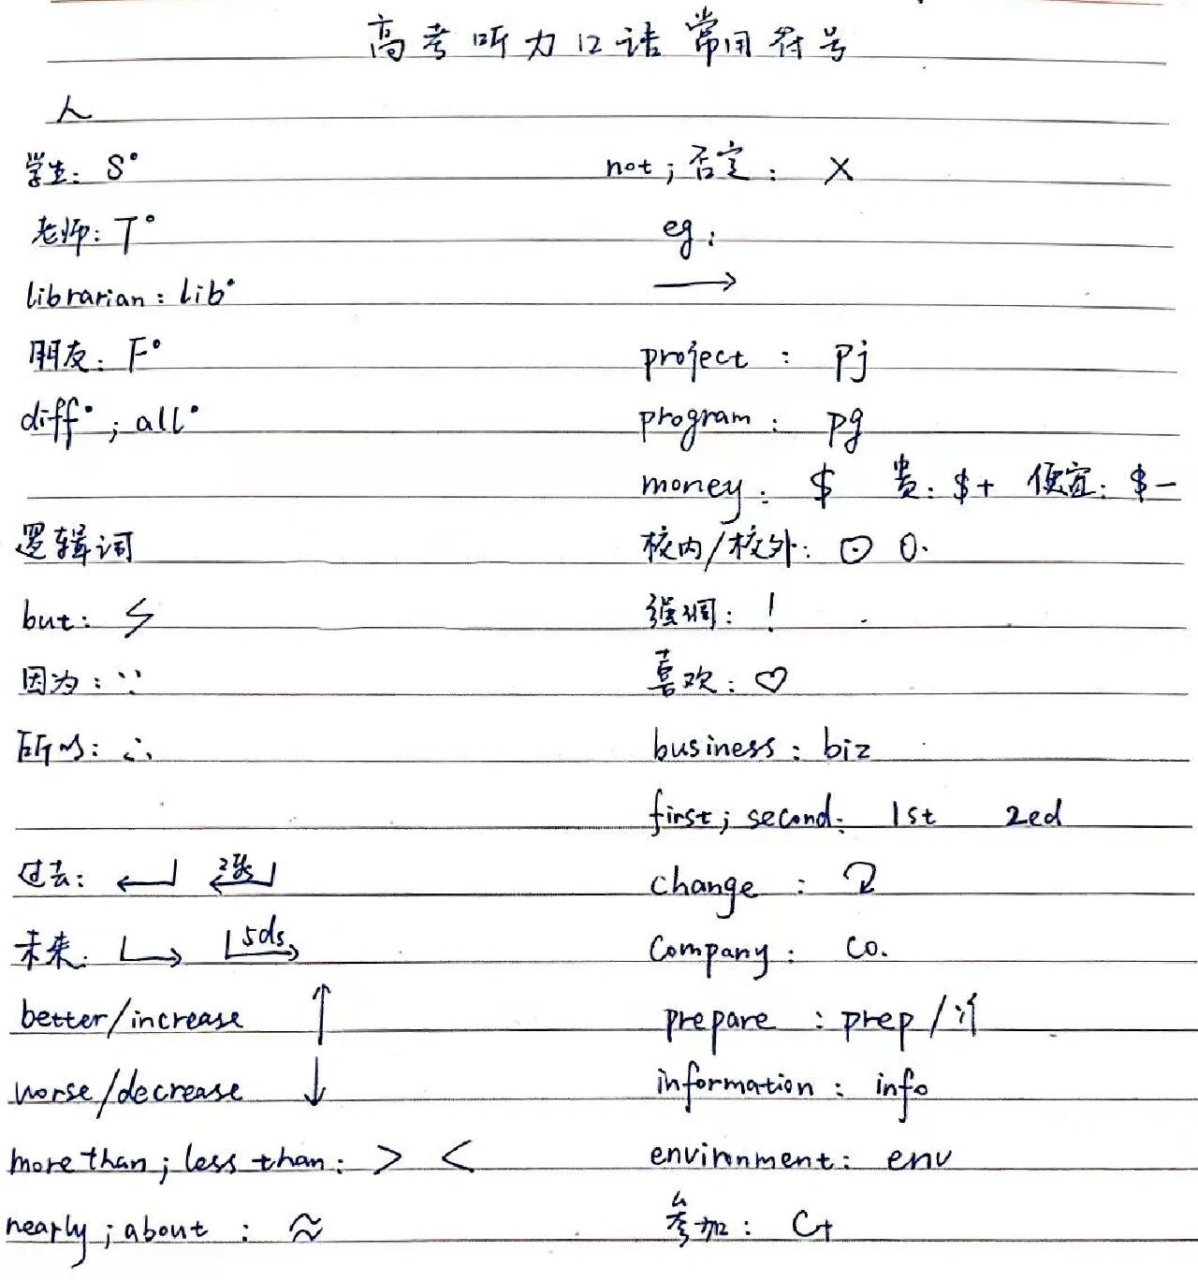 高考听力口语常用符号
人
学生: S°
老师: T°
librarian: lib°
朋友: F°
diff°; all°
逻辑词
but: ⚡
因为: ∵
所以: ∴
过去: ←┘ ←┘
未来: └→ └5ds→
better/increase ↑
worse/decrease ↓
more than; less than: > <
nearly; about : ≈
not; 否定: X
eg:
→
project : Pj
program: pg
money: $ 贵: $+ 便宜: $-
校内/校外: ⊙ O.
强调: !
喜欢: ♡
business: biz
first; second: 1st 2ed
change :
Company: Co.
prepare : prep /
information: info
environment: env
参加: C+